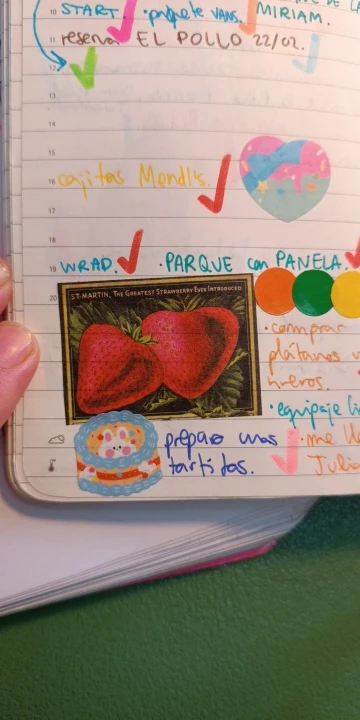 START. • paquete VANS. MIRIAM.
10
reserva EL POLLO 22/02.
11
12
13
14
15
cajitas Mendls.
16
17
18
WRAD. • PARQUE con PANELA.
19
20
ST. MARTIN, THE GREATEST STRAWBERRY EVER INTRODUCED
• comprar
plátanos
huevos.
• equipaje
preparo unas • me
tartitas.